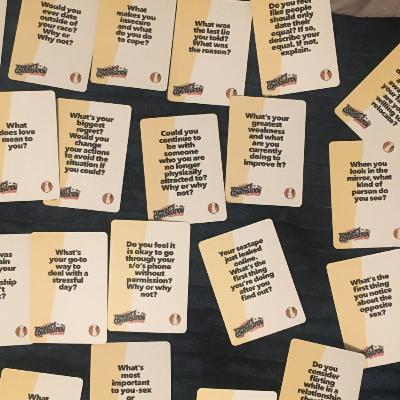 Would you
ever date
outside of
your race?
Why or
Why not?
What
makes you
insecure
and what
do you do
to cope?
What was
the last lie
you told?
What was
the reason?
Do you feel
like people
should only
date their
equal? If so,
describe your
equal. If not,
explain.
What
does love
mean to
you?
What's your
biggest
regret?
Would you
change
your actions
to avoid the
situation if
you could?
Could you
continue to
be with
someone
who you are
no longer
physically
attracted to?
Why or why
not?
What's your
greatest
weakness
and what
are you
currently
doing to
improve it?
When you
look in the
mirror, what
kind of
person do
you see?
What's
your go-to
way to
deal with a
stressful
day?
Do you feel it
is okay to go
through your
s/o's phone
without
permission?
Why or why
not?
Your sextape
just leaked
online.
What's the
first thing
you're doing
after you
find out?
What's the
first thing
you notice
about the
opposite
sex?
What
What's
most
important
to you-sex
or
Do you
consider
flirting
while in a
relationship